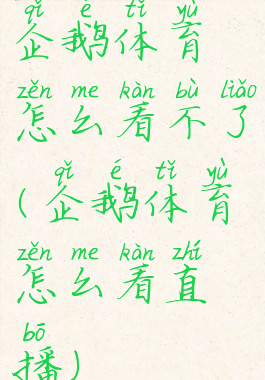 qǐ é tǐ yù
企鹅体育
zěn me kàn bù liǎo
怎么看不了
qǐ é tǐ yù
(企鹅体育
zěn me kàn zhí
怎么看直
bō
播)